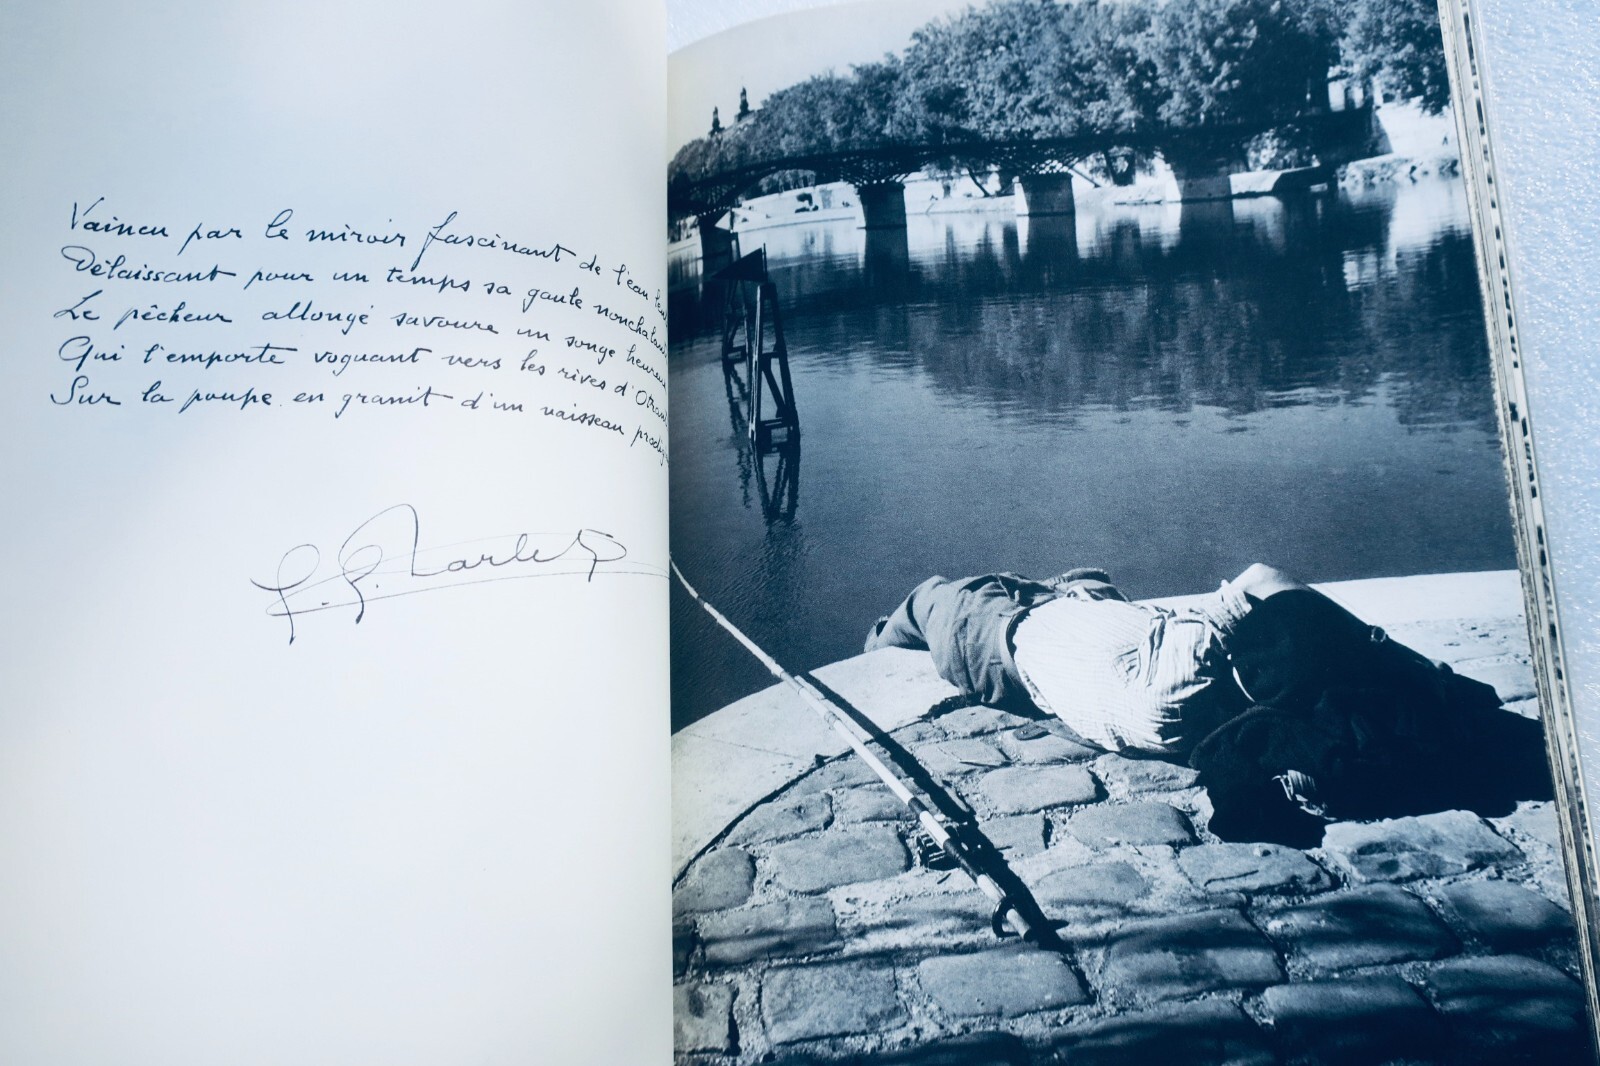 Vaincu par le miroir fascinant de l'eau
Délaissant pour un temps sa gaule
Le pêcheur allongé savoure un songe heureux
Qui l'emporte voguant vers les rives
Sur la poupe en granit d'un vaisseau